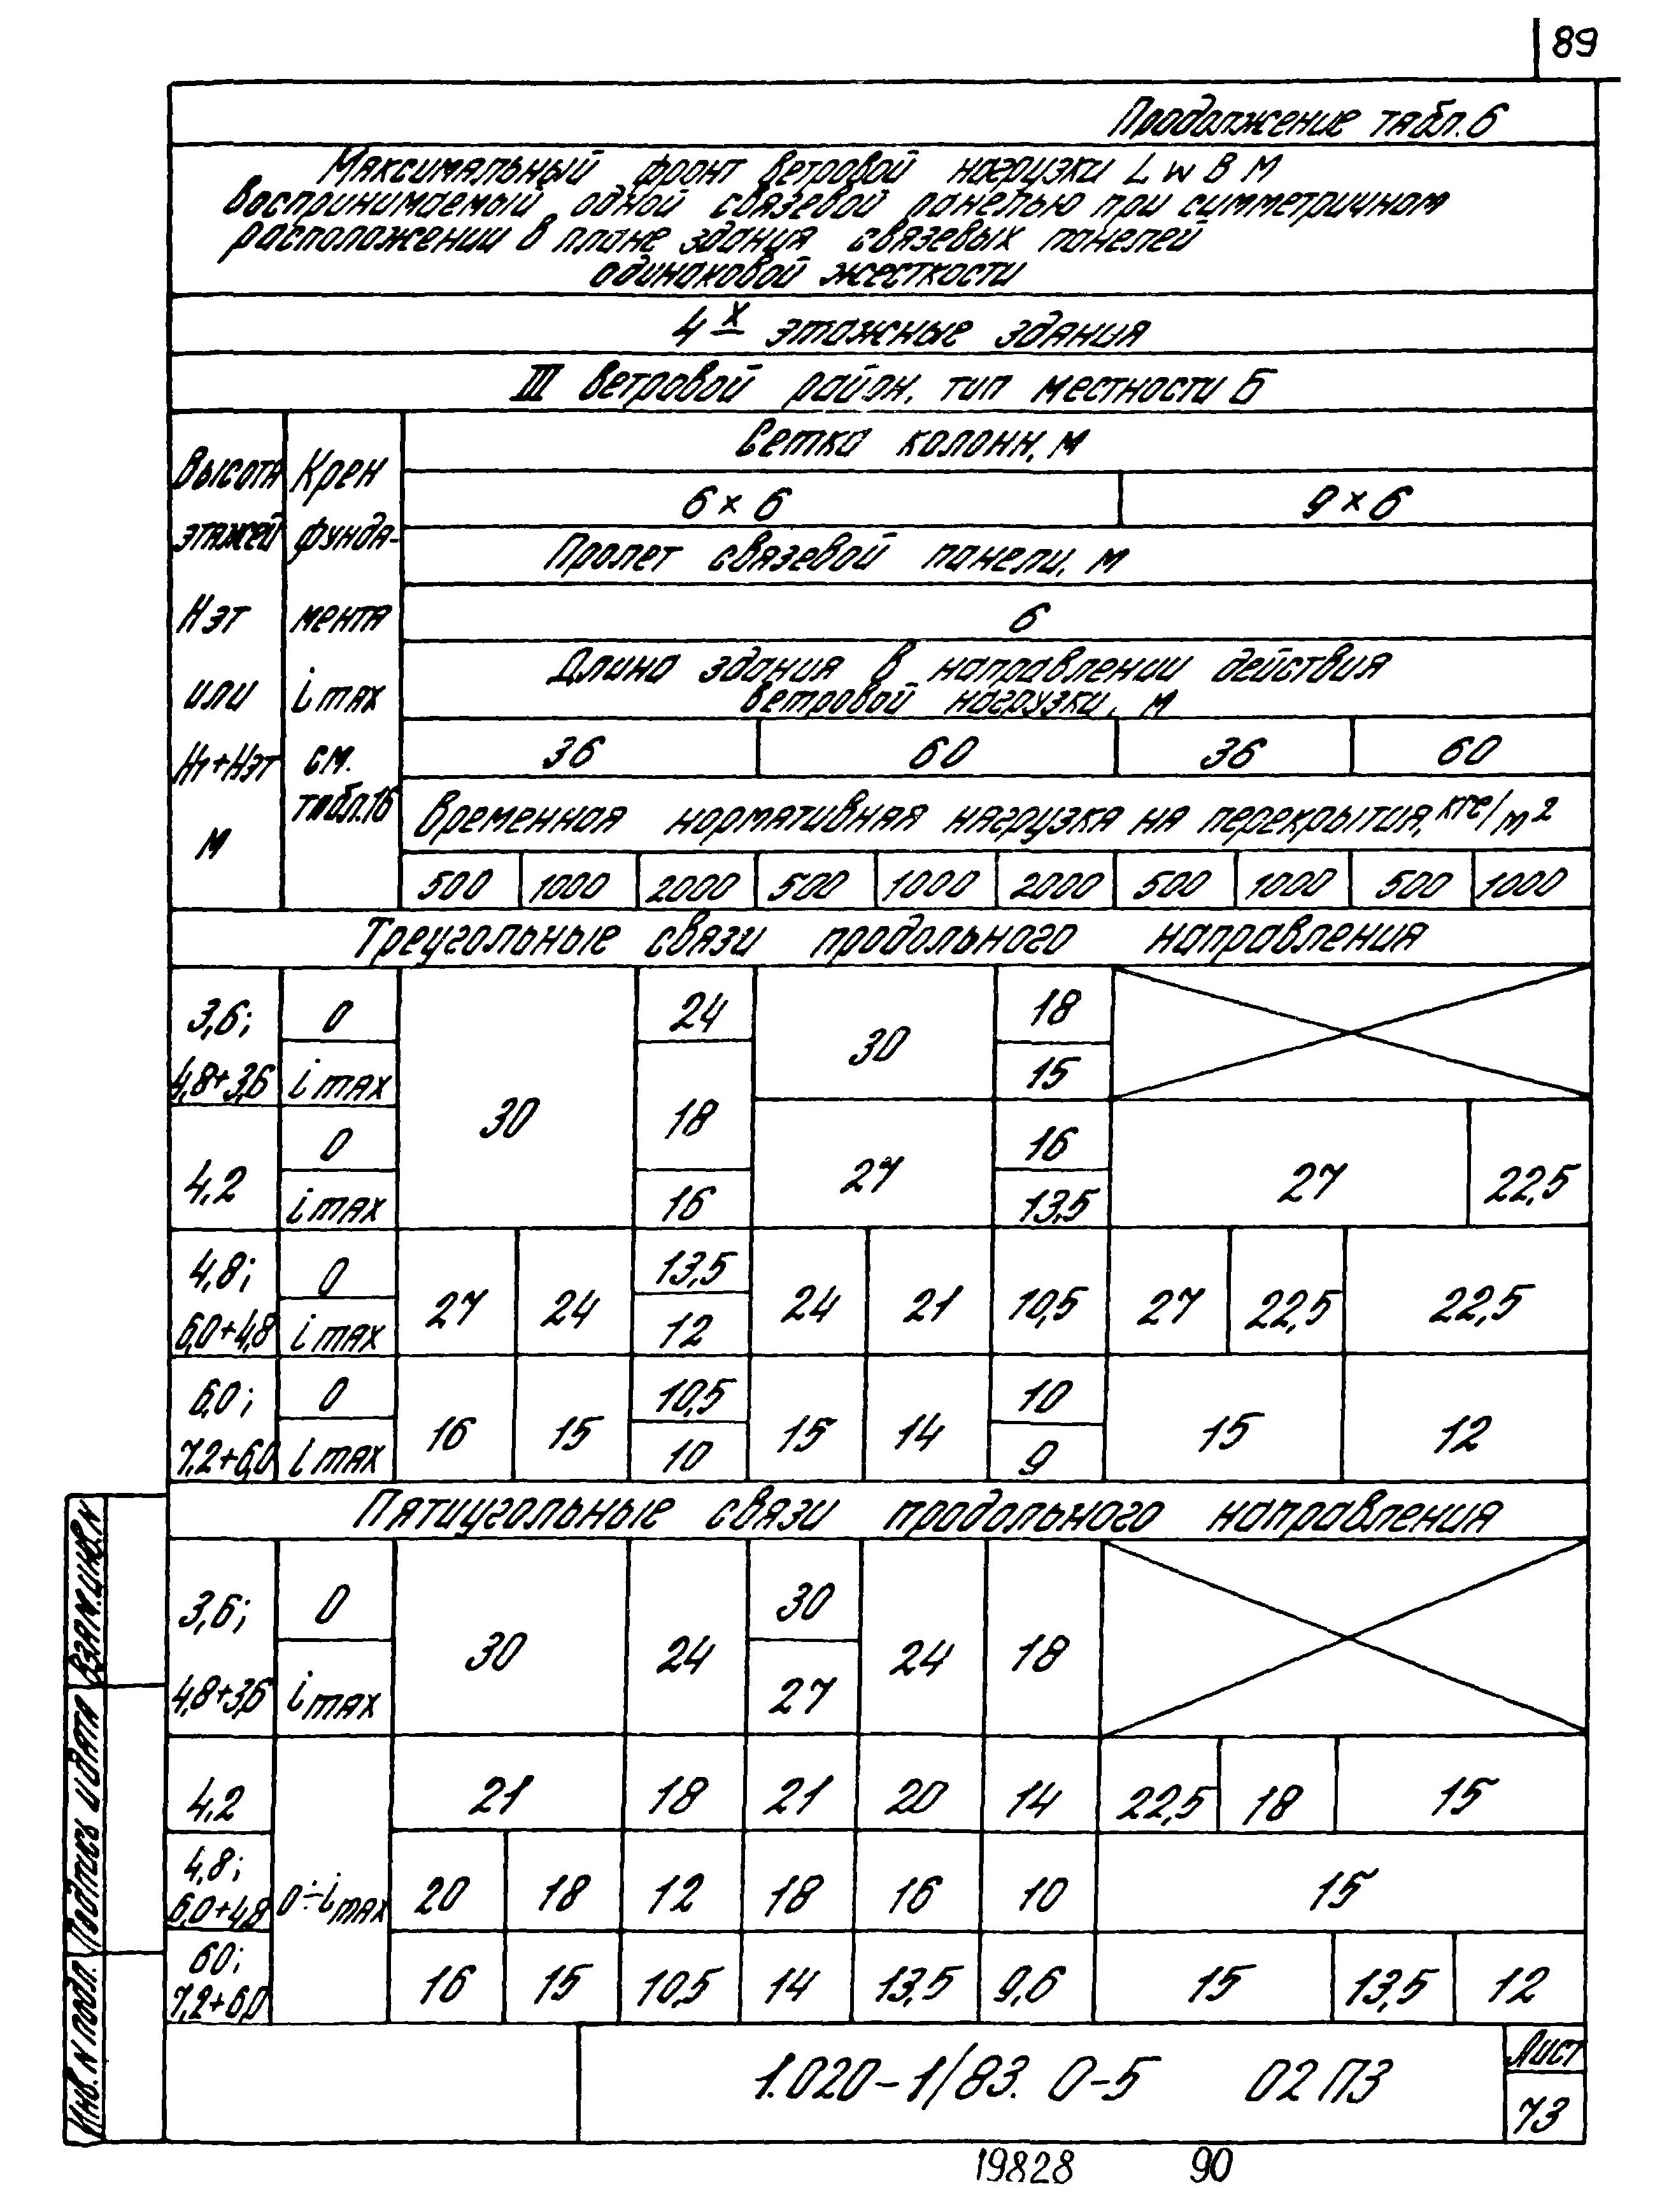 89
Продолжение табл.6
Максимальный фронт ветровой нагрузки L w в м
воспринимаемый одной связевой панелью при симметричном
расположении в плане здания связевых панелей
одинаковой жесткости
4 х этажные здания
III ветровой район, тип местности Б
Высота этажей Нэт или Н1+Нэт м
Крен фунда- мента i max см. табл.16
Сетка колонн, м
6 × 6 9 × 6
Пролет связевой панели, м
6
Длина здания в направлении действия
ветровой нагрузки, м
36 60 36 60
Временная нормативная нагрузка на перекрытия, кгс/м2
500 1000 2000 500 1000 2000 500 1000 500 1000
Треугольные связи продольного направления
3,6; 0 24 18
30
4,8+3,6 i max 15
30 18
0 16
27
4,2 27 22,5
i max 16 13,5
4,8; 0 13,5
27 24 24 21 10,5 27 22,5 22,5
6,0+4,8 i max 12
6,0; 0 10,5 10
16 15 15 14 15 12
7,2+6,0 i max 10 9
Пятиугольные связи продольного направления
3,6; 0 30
30 24 24 18
4,8+3,6 i max 27
4,2 21 18 21 20 14 22,5 18 15
4,8;
6,0+4,8 0÷i max 20 18 12 18 16 10 15
60;
7,2+6,0 16 15 10,5 14 13,5 9,6 15 13,5 12
Взам.инв.N
Подпись и дата
Инв. N подл.
1.020-1/83. 0-5 02 ПЗ
Лист
73
19828 90